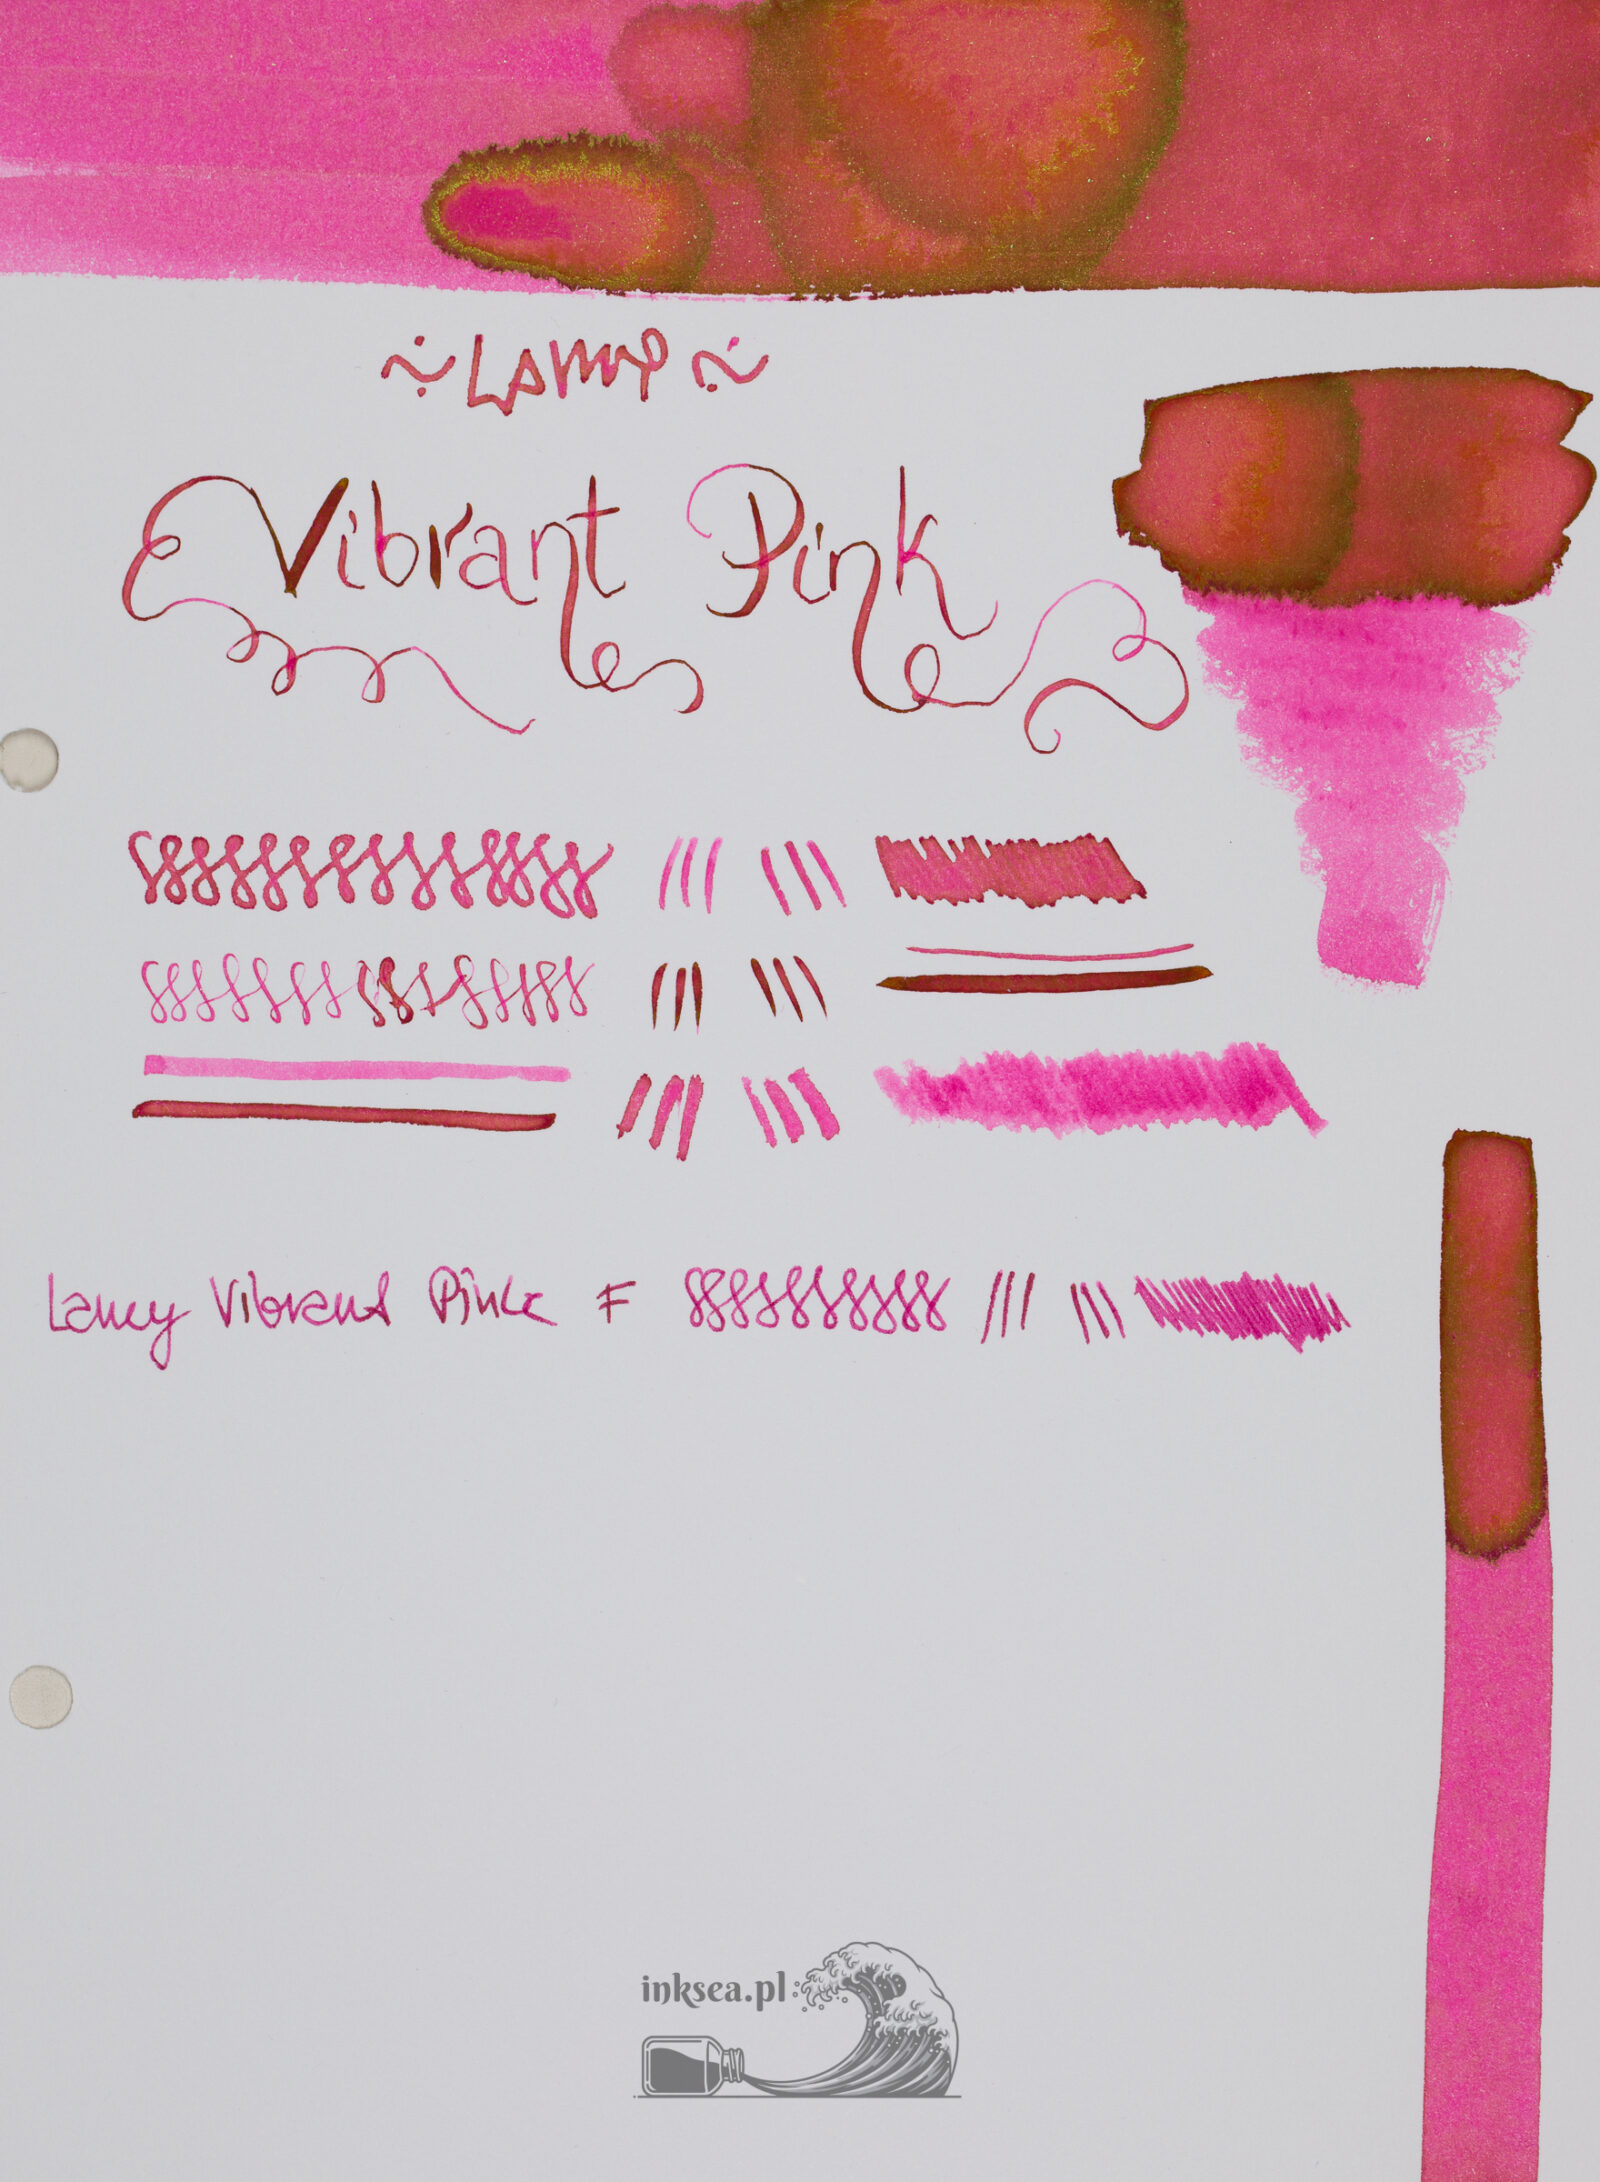 ~ LAMY ~
Vibrant Pink
Lamy Vibrant Pink F
inksea.pl